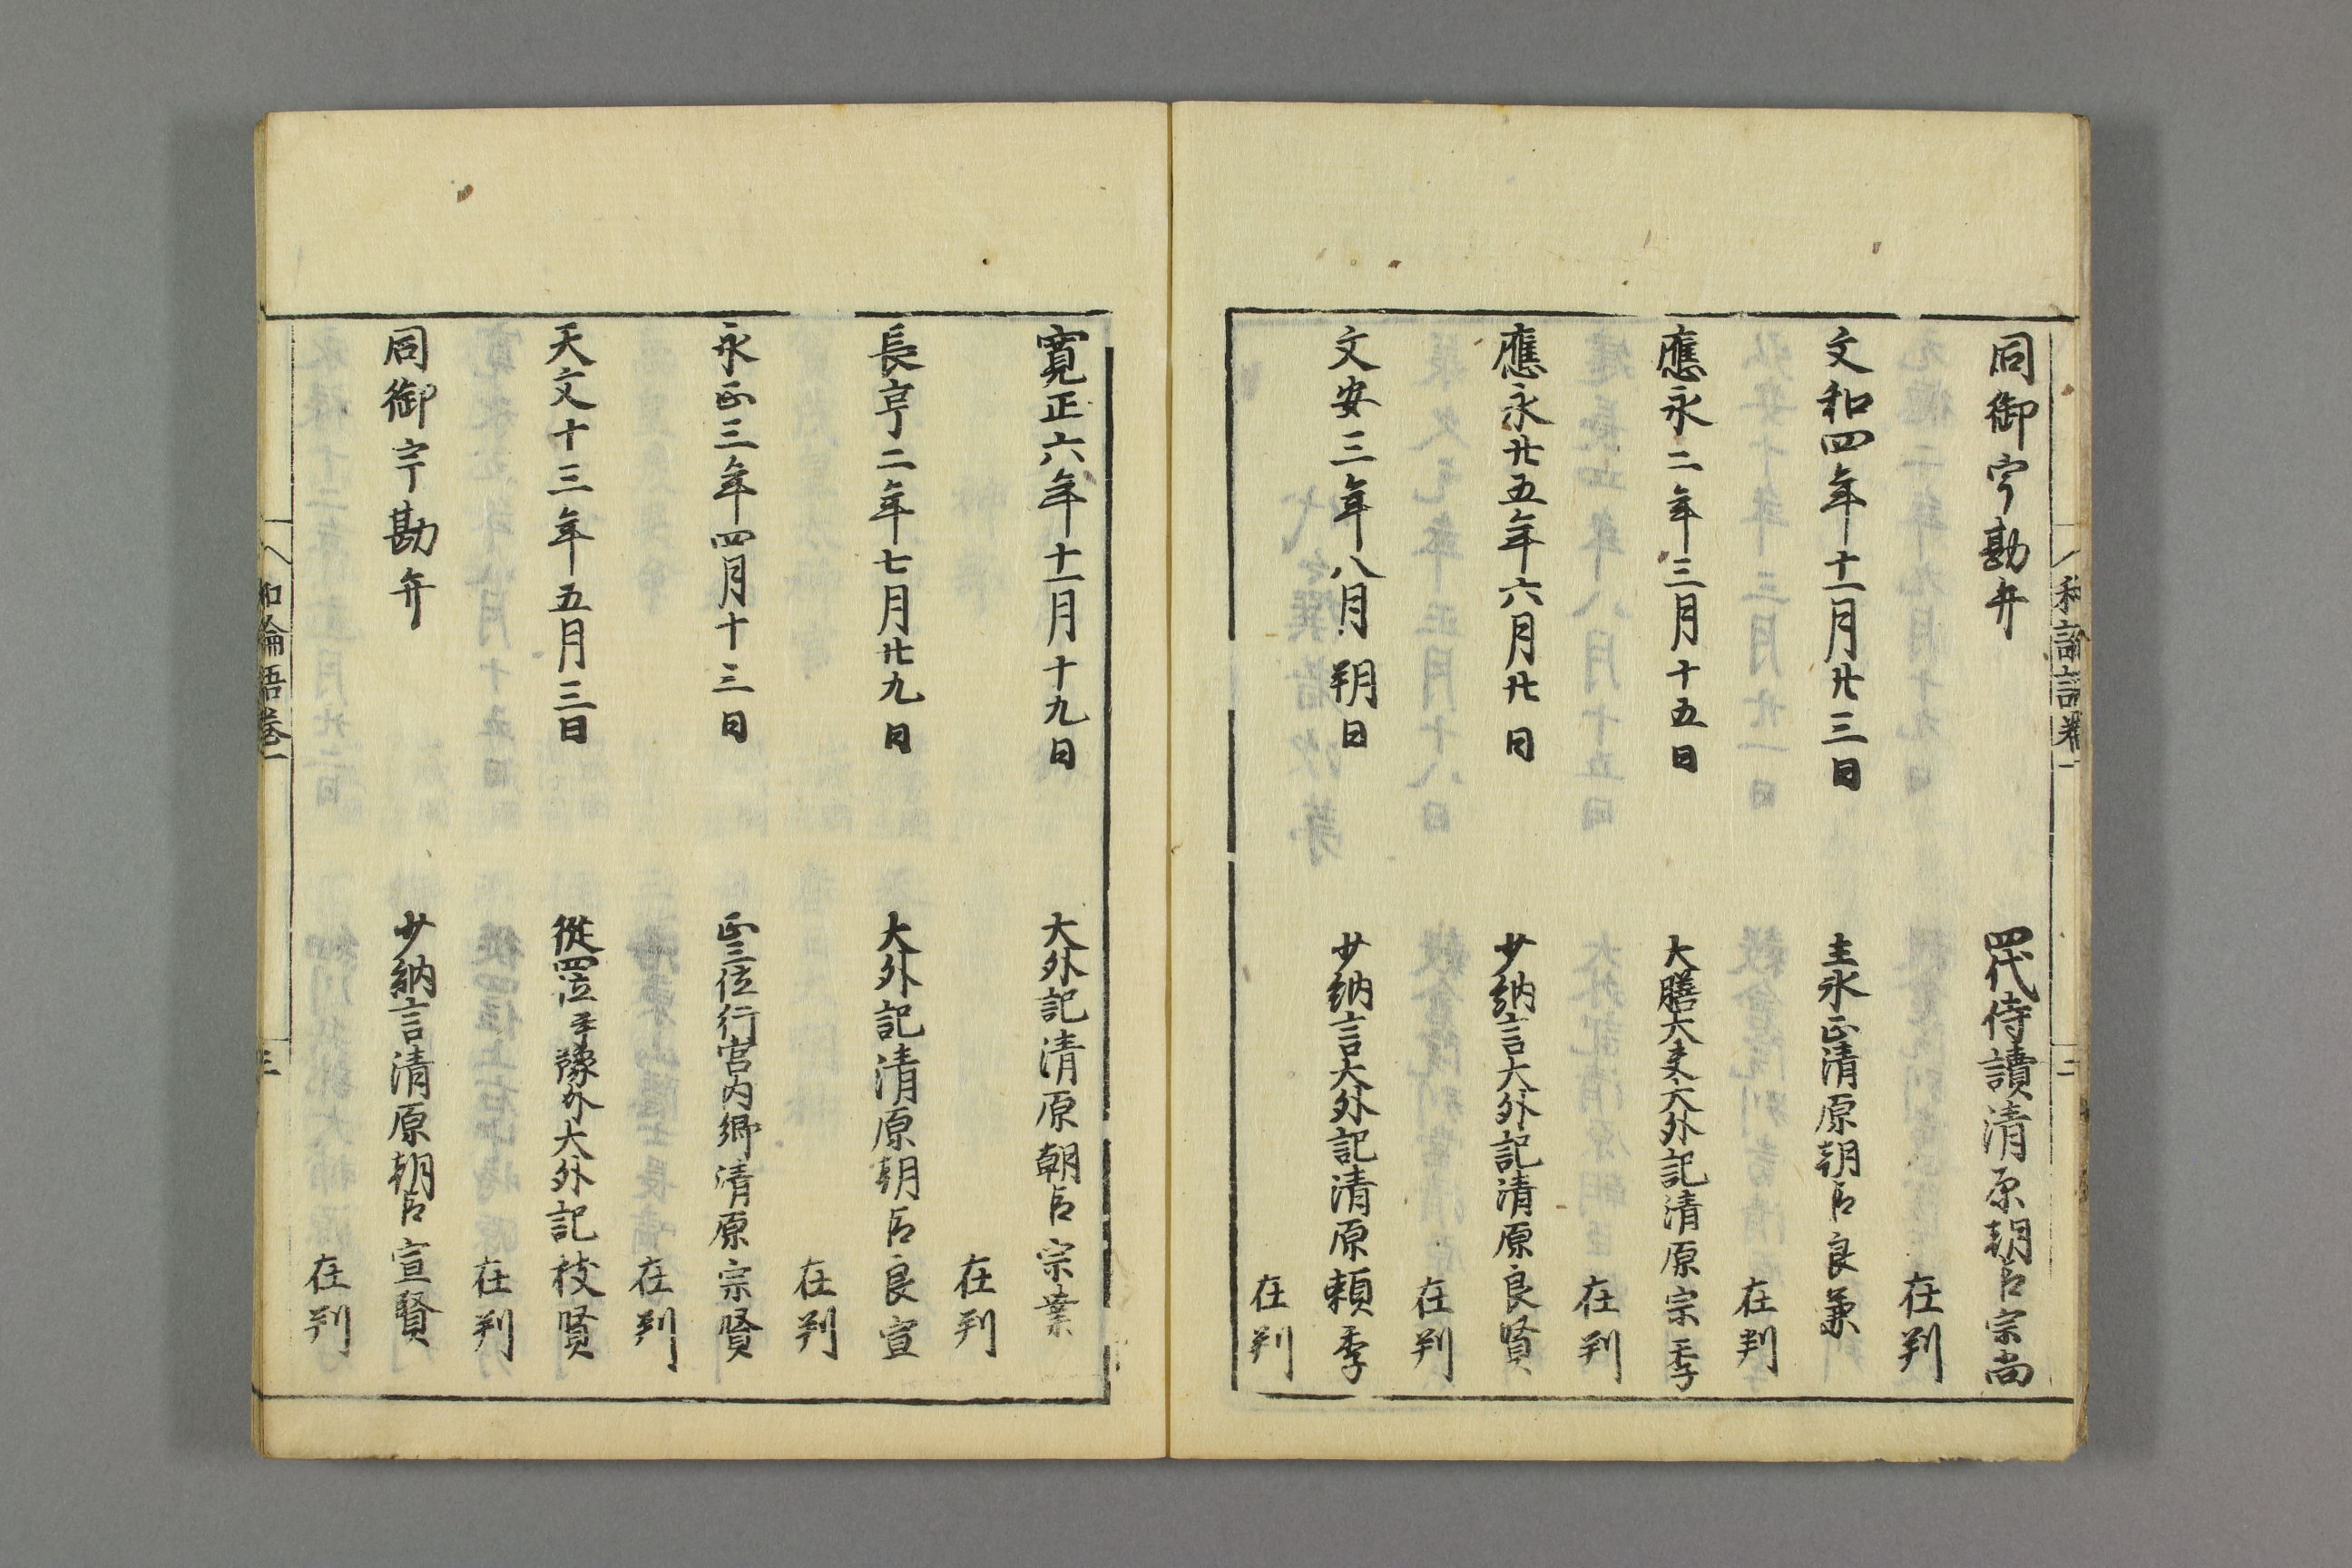 和論語卷一
二
同御宇勘弁
四代侍讀清原朝臣宗尚
在判
文和四年十一月廿三日
主水正清原朝臣良兼
在判
應永二年三月十五日
大膳大夫大外記清原宗季
在判
應永廿五年六月廿日
少納言大外記清原良賢
在判
文安三年八月朔日
少納言大外記清原頼季
在判
寛正六年十一月十九日
大外記清原朝臣宗業
在判
長享二年七月廿九日
大外記清原朝臣良宣
在判
永正三年四月十三日
正三位行宮内卿清原宗賢
在判
天文十三年五月三日
從四位伊豫外大外記枝賢
在判
同御宇勘弁
少納言清原朝臣宣賢
在判
和論語卷一
三